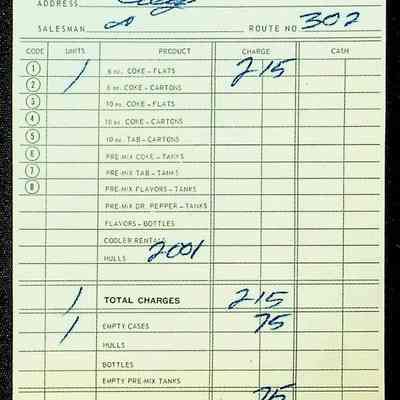 ADDRESS
SALESMAN ROUTE NO. 302
CODE UNITS PRODUCT CHARGE CASH
1 1 6 oz. COKE-FLATS 215
2 6 oz. COKE-CARTONS
3 10 oz. COKE-FLATS
4 10 oz. COKE-CARTONS
5 10 oz. TAB-CARTONS
6 PRE-MIX COKE-TANKS
7 PRE-MIX TAB-TANKS
8 PRE-MIX FLAVORS-TANKS
PRE-MIX DR. PEPPER-TANKS
FLAVORS-BOTTLES
COOLER RENTALS
HULLS 2001
1 TOTAL CHARGES 215
1 EMPTY CASES 75
HULLS
BOTTLES
EMPTY PRE-MIX TANKS
75